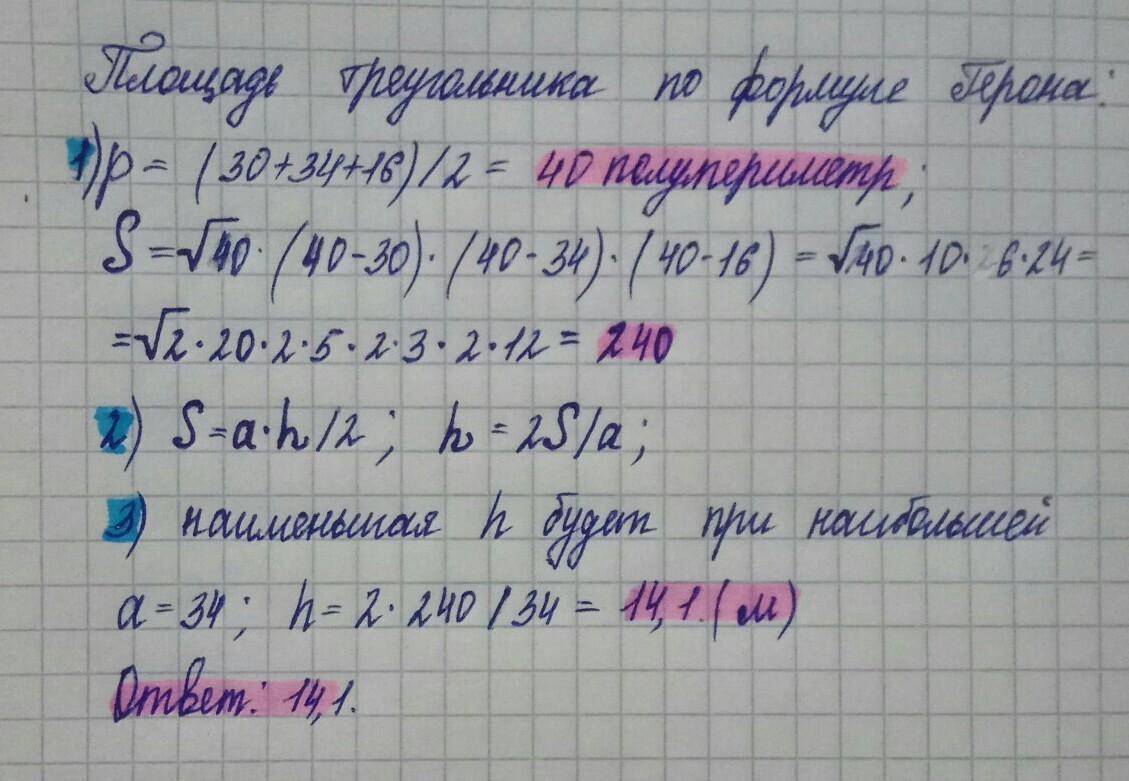 Площадь треугольника по формуле Герона:
1) p = (30+34+16)/2 = 40 полупериметр;
S = √40 · (40-30) · (40-34) · (40-16) = √40 · 10 · 6 · 24 =
= √2 · 20 · 2 · 5 · 2 · 3 · 2 · 12 = 240
2) S = a · h / 2 ; h = 2S/a ;
3) наименьшая h будет при наибольшей
a = 34 ; h = 2 · 240 / 34 = 14,1. (м)
Ответ: 14,1.